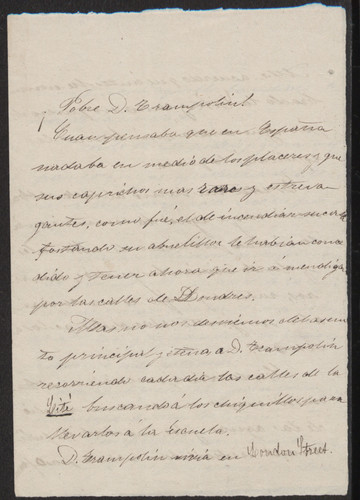 ¡Pobre D. Trampolin!
Cuan pensaba que en España
nadaba en medio de los placeres y que
sus caprichos mas raros y estrava
gantes, como fué, el de incendiar su casa
tostando su abuelito se habian conce
dido y tener ahora que ir á mendigar
por las calles de Londres.
Mas no nos desviemos del asun
to principal y
á D. Trampolin
recorriendo cada dia las calles de la
Cité buscando á los chiquillos para
llevarlos á la Escuela.
D. Trampolin vivia en London Street.